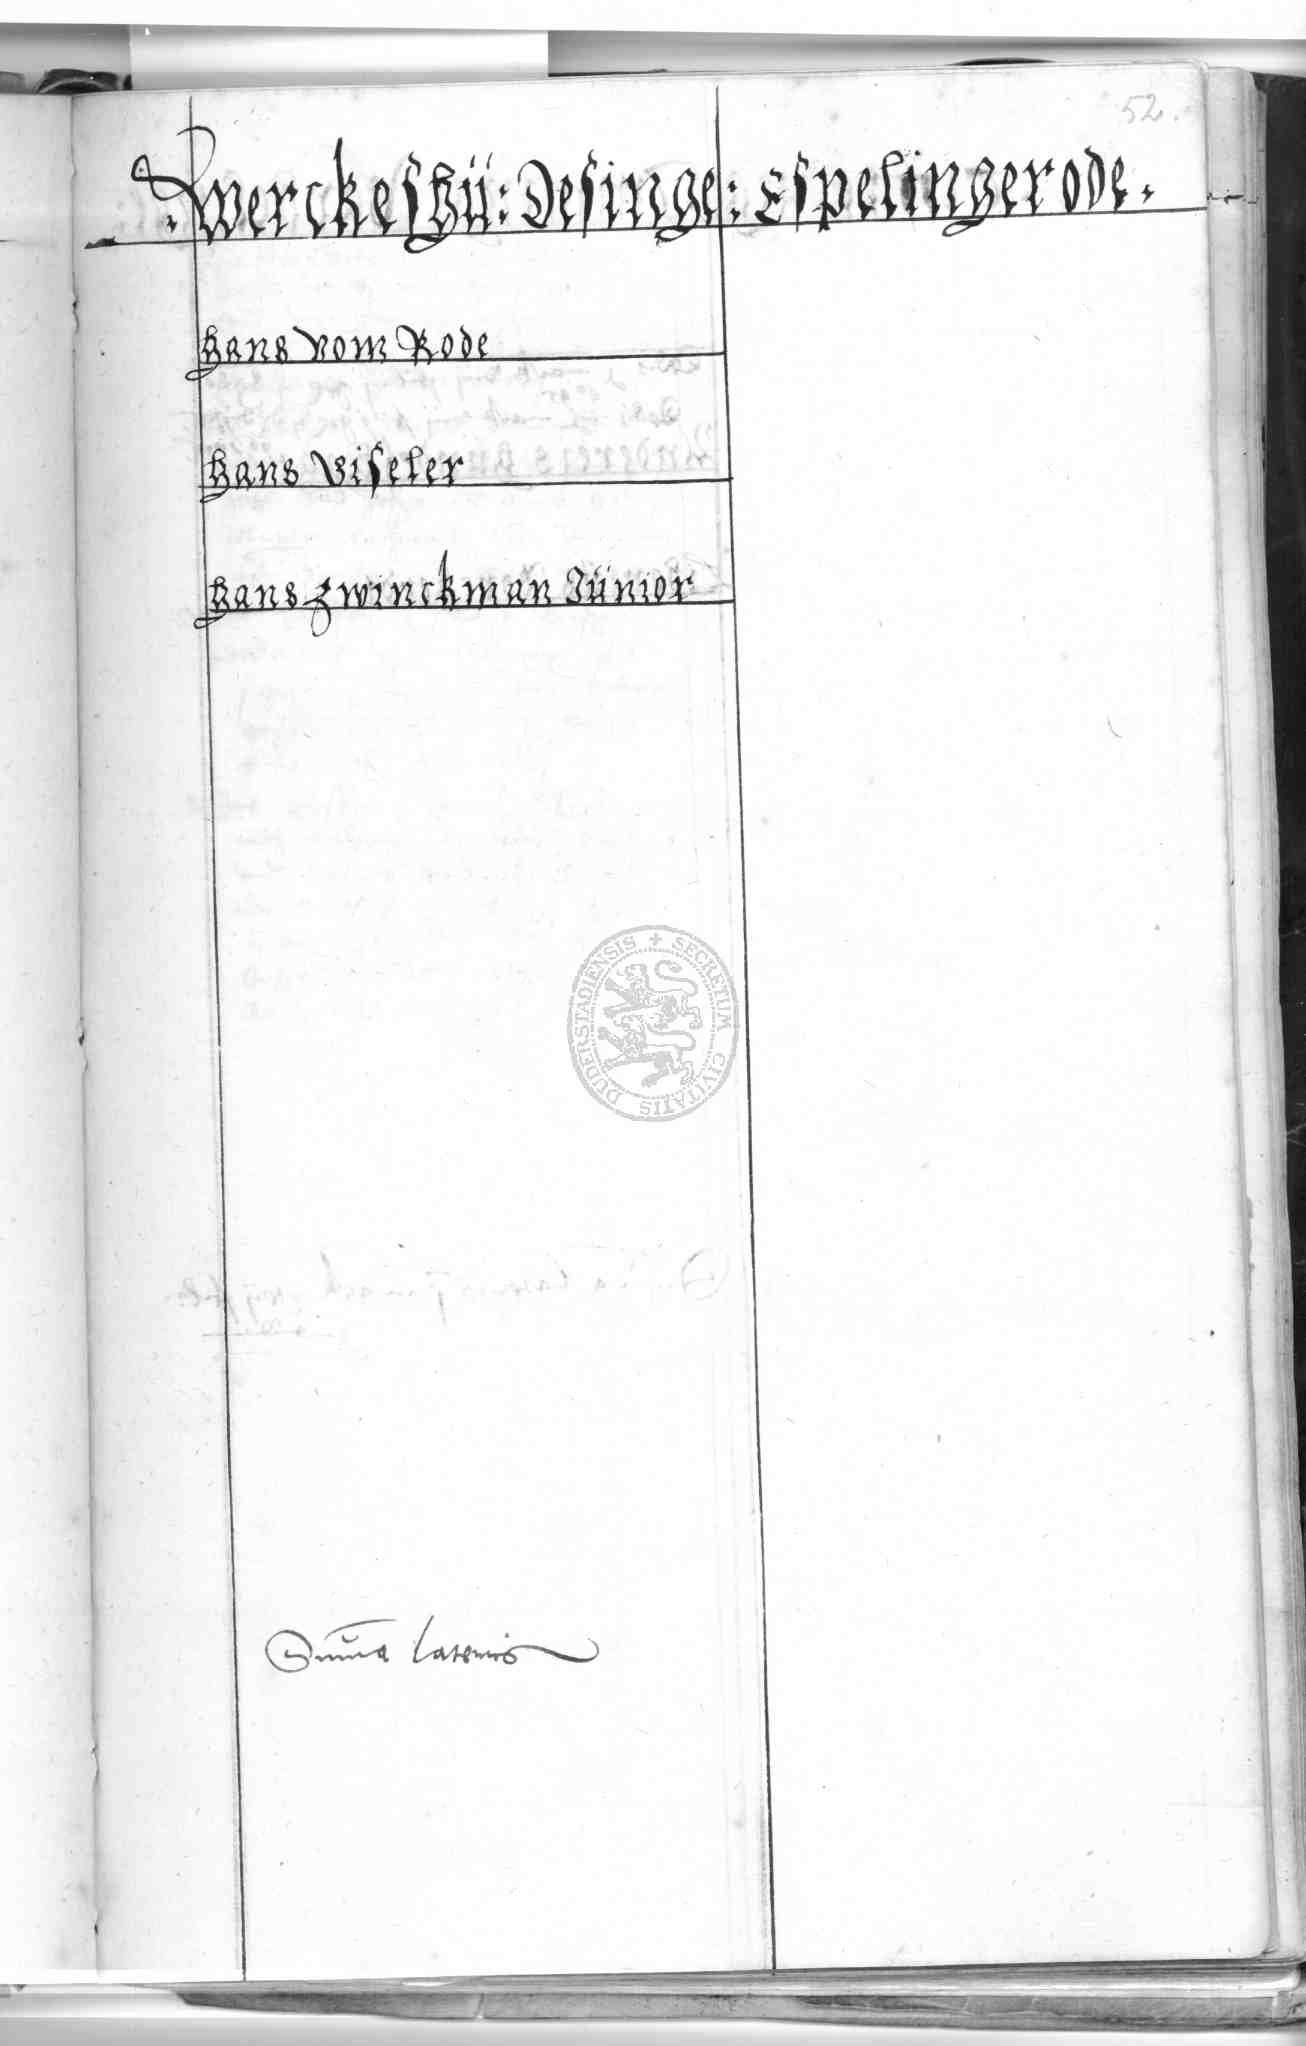 52.
Werckeshü: Desinge: Espelingerode.
Hans vom Rode
Hans Viseler
Hans Zwinckman Jünior
SECRETUM CIVITATIS DUDERSTADIENSIS
Suma lateris